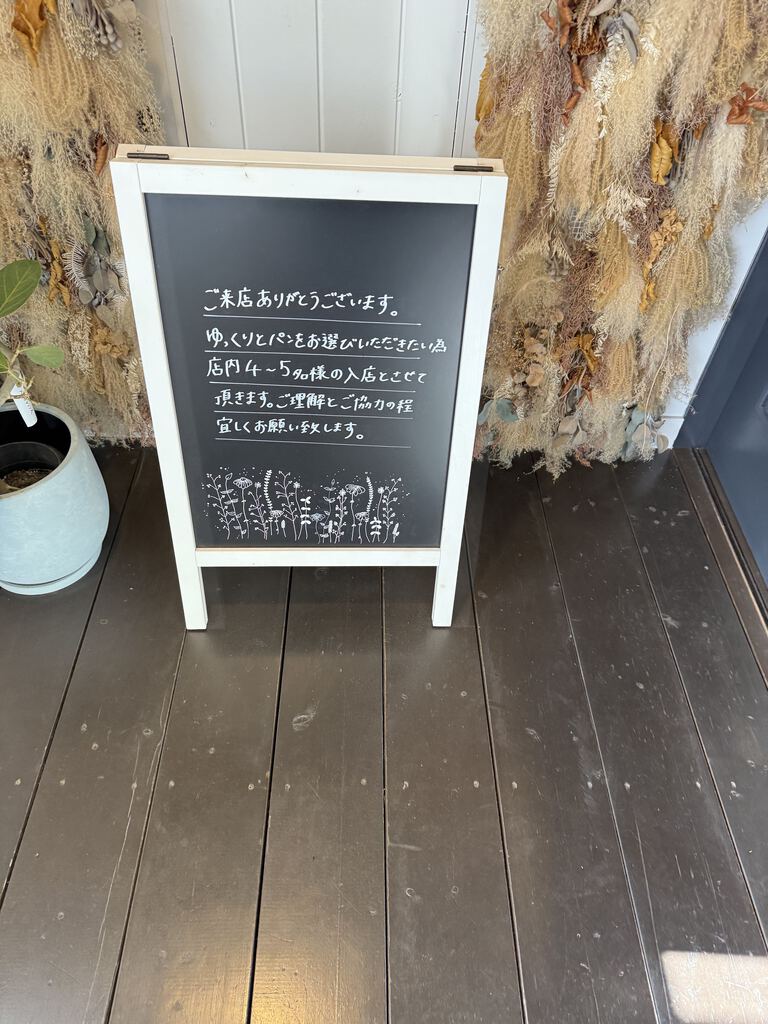 ご来店ありがとうございます。
ゆっくりとパンをお選びいただきたい為
店内4〜5名様の入店とさせて
頂きます。ご理解とご協力の程
宜しくお願い致します。